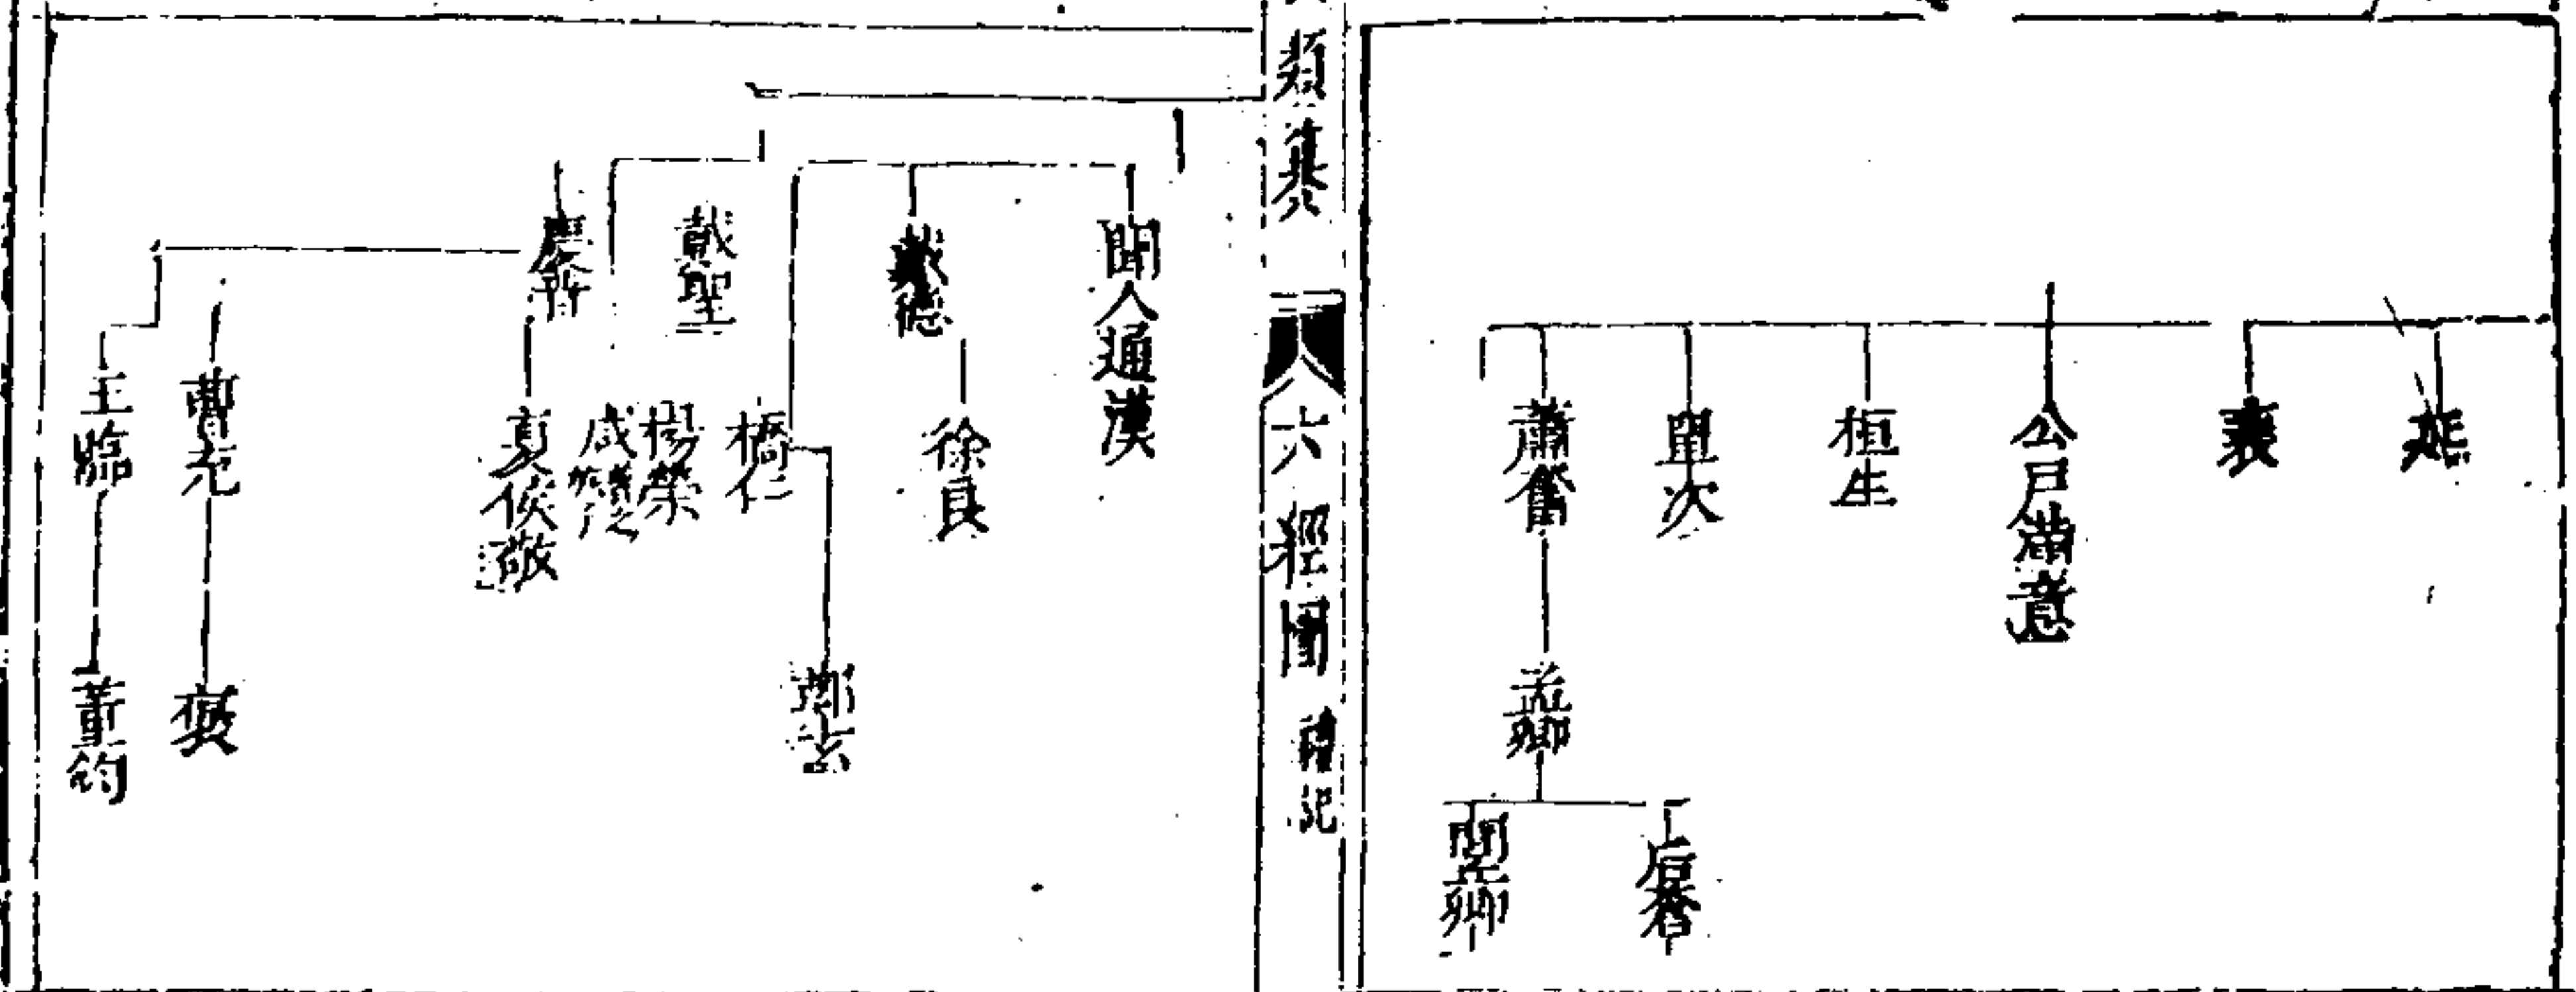 延
襄
公戶滿意
桓生
單次
蕭奮
孟卿
后蒼
閭丘卿
類
六經圖
禮記
聞人通漢
戴德
徐良
戴聖
橋仁
鄭玄
楊榮
慶普
夏侯敬
曹充
褒
王臨
董鈞